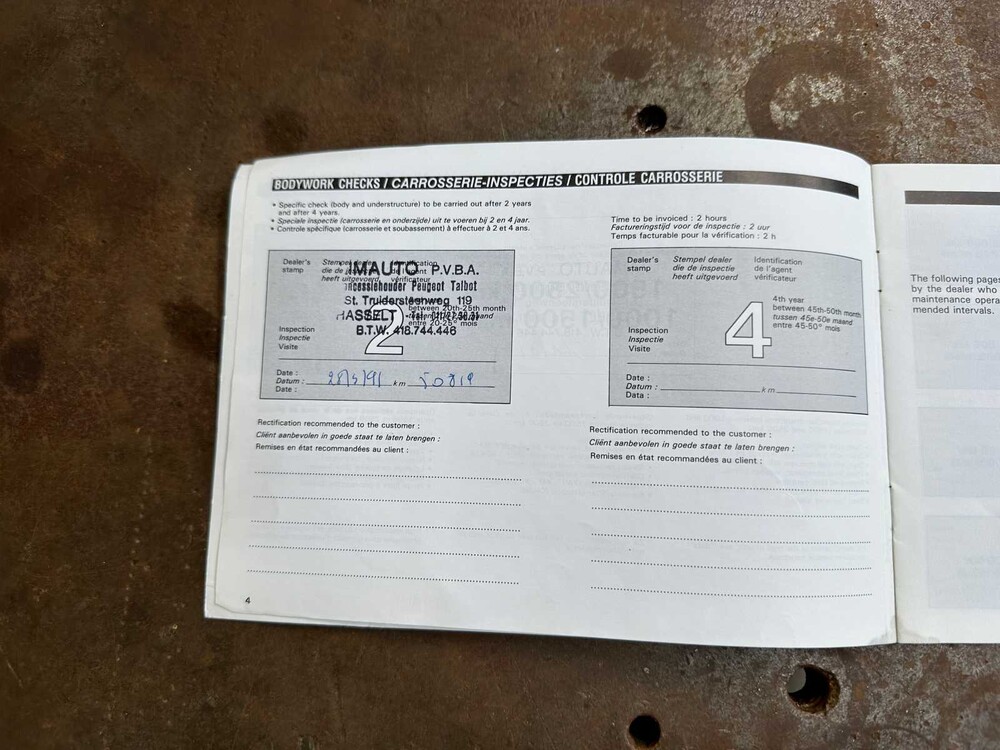 BODYWORK CHECKS / CARROSSERIE-INSPECTIES / CONTROLE CARROSSERIE
• Specific check (body and understructure) to be carried out after 2 years
and after 4 years.
• Speciale inspectie (carrosserie en onderzijde) uit te voeren bij 2 en 4 jaar.
• Contrôle spécifique (carrosserie et soubassement) à effectuer à 2 et 4 ans.
Time to be invoiced : 2 hours
Factureringstijd voor de inspectie : 2 uur
Temps facturable pour la vérification : 2 h
Dealer's
stamp
Stempel dealer
die de
heeft uitgevoerd
Identification
de l'agent
vérificateur
IMAUTO P.V.B.A.
Peugeot Talbot
St. Truidersteenweg 119
HASSELT
B.T.W. 418.744.446
2
between 20th-25th month
entre 20-25° mois
Inspection
Inspectie
Visite
Date :
Datum : 28/3/91 km 50819
Date :
Dealer's
stamp
Stempel dealer
die de inspectie
heeft uitgevoerd
Identification
de l'agent
vérificateur
4
4th year
between 45th-50th month
tussen 45e-50e maand
entre 45-50° mois
Inspection
Inspectie
Visite
Date :
Datum : km
Data :
Rectification recommended to the customer :
Cliënt aanbevolen in goede staat te laten brengen :
Remises en état recommandées au client :
Rectification recommended to the customer :
Cliënt aanbevolen in goede staat te laten brengen :
Remises en état recommandées au client :
4
The following pages
by the dealer who
maintenance opera
mended intervals.